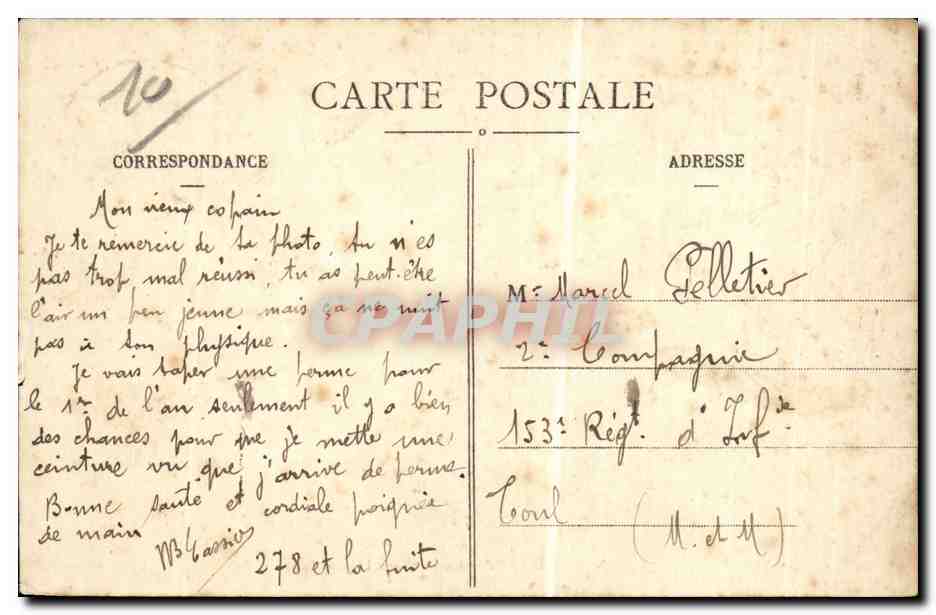 10
CARTE POSTALE
CORRESPONDANCE
Mon vieux copain
Je te remercie de ta photo, tu n'es
pas trop mal réussi, tu as peut-être
l'air un peu jeune mais ça ne nuit
pas à ton physique.
Je vais taper une perme pour
le 1er de l'an seulement il y a bien
des chances pour que je mette une
ceinture vu que j'arrive de perme.
Bonne santé et cordiale poignée
de main
278 et la fuite
ADRESSE
Mr Marcel Pelletier
2e Compagnie
153e Régt. d'Infie
Toul (M. et M)
CPAPHIL